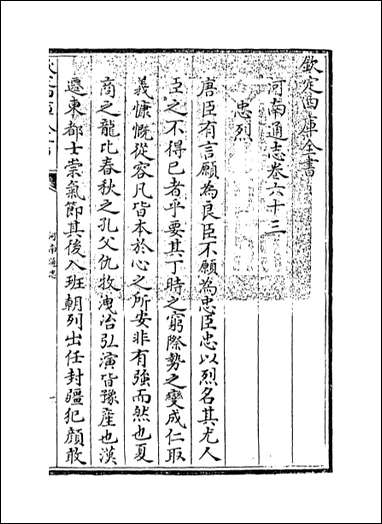 欽定四庫全書
河南通志卷六十三
忠烈
唐臣有言願為良臣不願為忠臣忠以烈名其尤人
臣之不得已者乎要其丁時之窮際勢之變成仁取
義慷慨從容凡皆本於心之所安非有強而然也夏
商之龍比春秋之孔父仇牧洩冶弘演皆豫產也漢
遷東都士崇氣節其後入班朝列出任封疆犯顏敢
河南通志